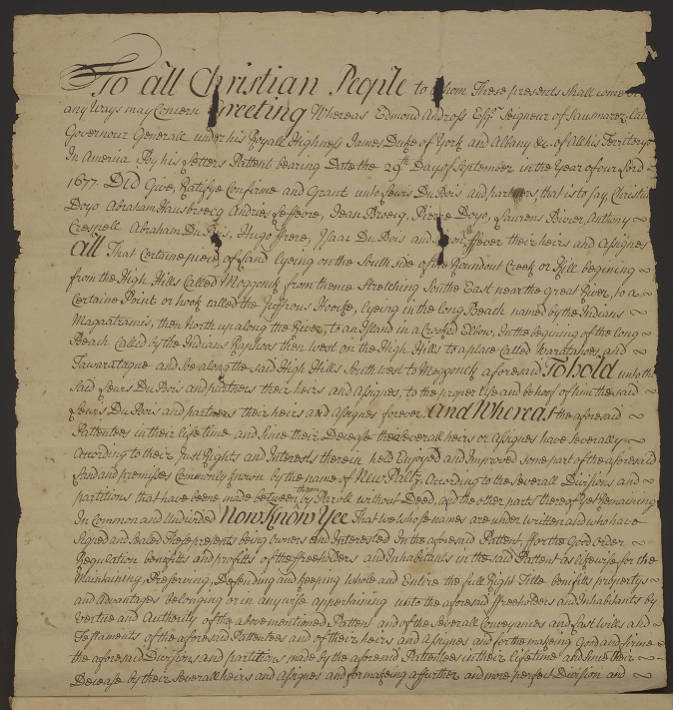 To all Christian People to whom These presents shall come
any Ways may Concern Greeting Whereas Edmond Andross Esqr. Seigneur of Sausmarez
Governour Generall under his Royall Highness James Duke of York and Albany &c. of All his Territoryes
In America By his Letters Pattent bearing Date the 29th Day of September in the Year of our Lord
1677. Did Give, Ratifye Confirme and Grant unto Lewis DuBois and partners, that is to say, Christian
Doyo Abraham Hausbroecq Andries Leffevre, Jean Broecq, Pierre Doyo, Laurens Bivier, Anthony
Crespell Abraham DuBois, Hugo Frere, Isaac DuBois and Leffever their heirs and Assignes
all That Certaine peice of Land Lyeing on the South side of the Roundout Creek or Kill begining
from the High Hills Called Moggonk from thence Stretching South East near the Great River, to a
Certaine Point or hook called the Hoocke, Lyeing in the long Reach named by the Indians
Magaatramis, then North up along the River, to an Island in a Crooked Elbow, In the begining of the long
Reach Called by the Indians Raphoos then west on the High Hills to a place Called Waratahoes and
Tawarataque and Soe along the said High Hills South west to Moggonck aforesaid To hold unto the
Said Lewis DuBois and partners their heirs and Assignes, to the proper Use and behoof of him the said
Lewis DuBois and partners their heirs and Assignes forever. And Whereas the aforesaid
Pattentees in their life time and Since their Decease their Severall heirs or Assignes have Severally
According to their Just Rights and Interests therein held Enjoyed and Improved some part of the aforesaid
Land and premisses Commonly known by the name of New Paltz, According to the Severall Divisions and
partitions that have beene made between them by Parole without Deed, and the other parts thereof yet Remaining
In Common and Undivided Now Know Yee That we whose names are under written and who have
Signed and sealed These presents being owners and Interested In the aforesaid Patent, ffor the Good order
Regulation benefitts and profitts of the ffreeholders and Inhabitants in the said Pattent as likewise for the
Maintaining, Preserving, Defending and keeping whole and Entire the full Right Title benefitts property
and Advantages belonging or in any wise appertaining unto the aforesaid ffreeholders and Inhabitants by
Vertue and Authority of the above mentioned Pattent and of the Severall Conveyances and Last wills and
Testaments of the aforesaid Pattentees and of their heirs and Assignes and for the makeing Good and firme
the aforesaid Divisions and partitions made by the aforesaid Pattentees in their lifetime and since their
Decease by their Severall heirs and Assignes and for makeing a further and more perfect Division and